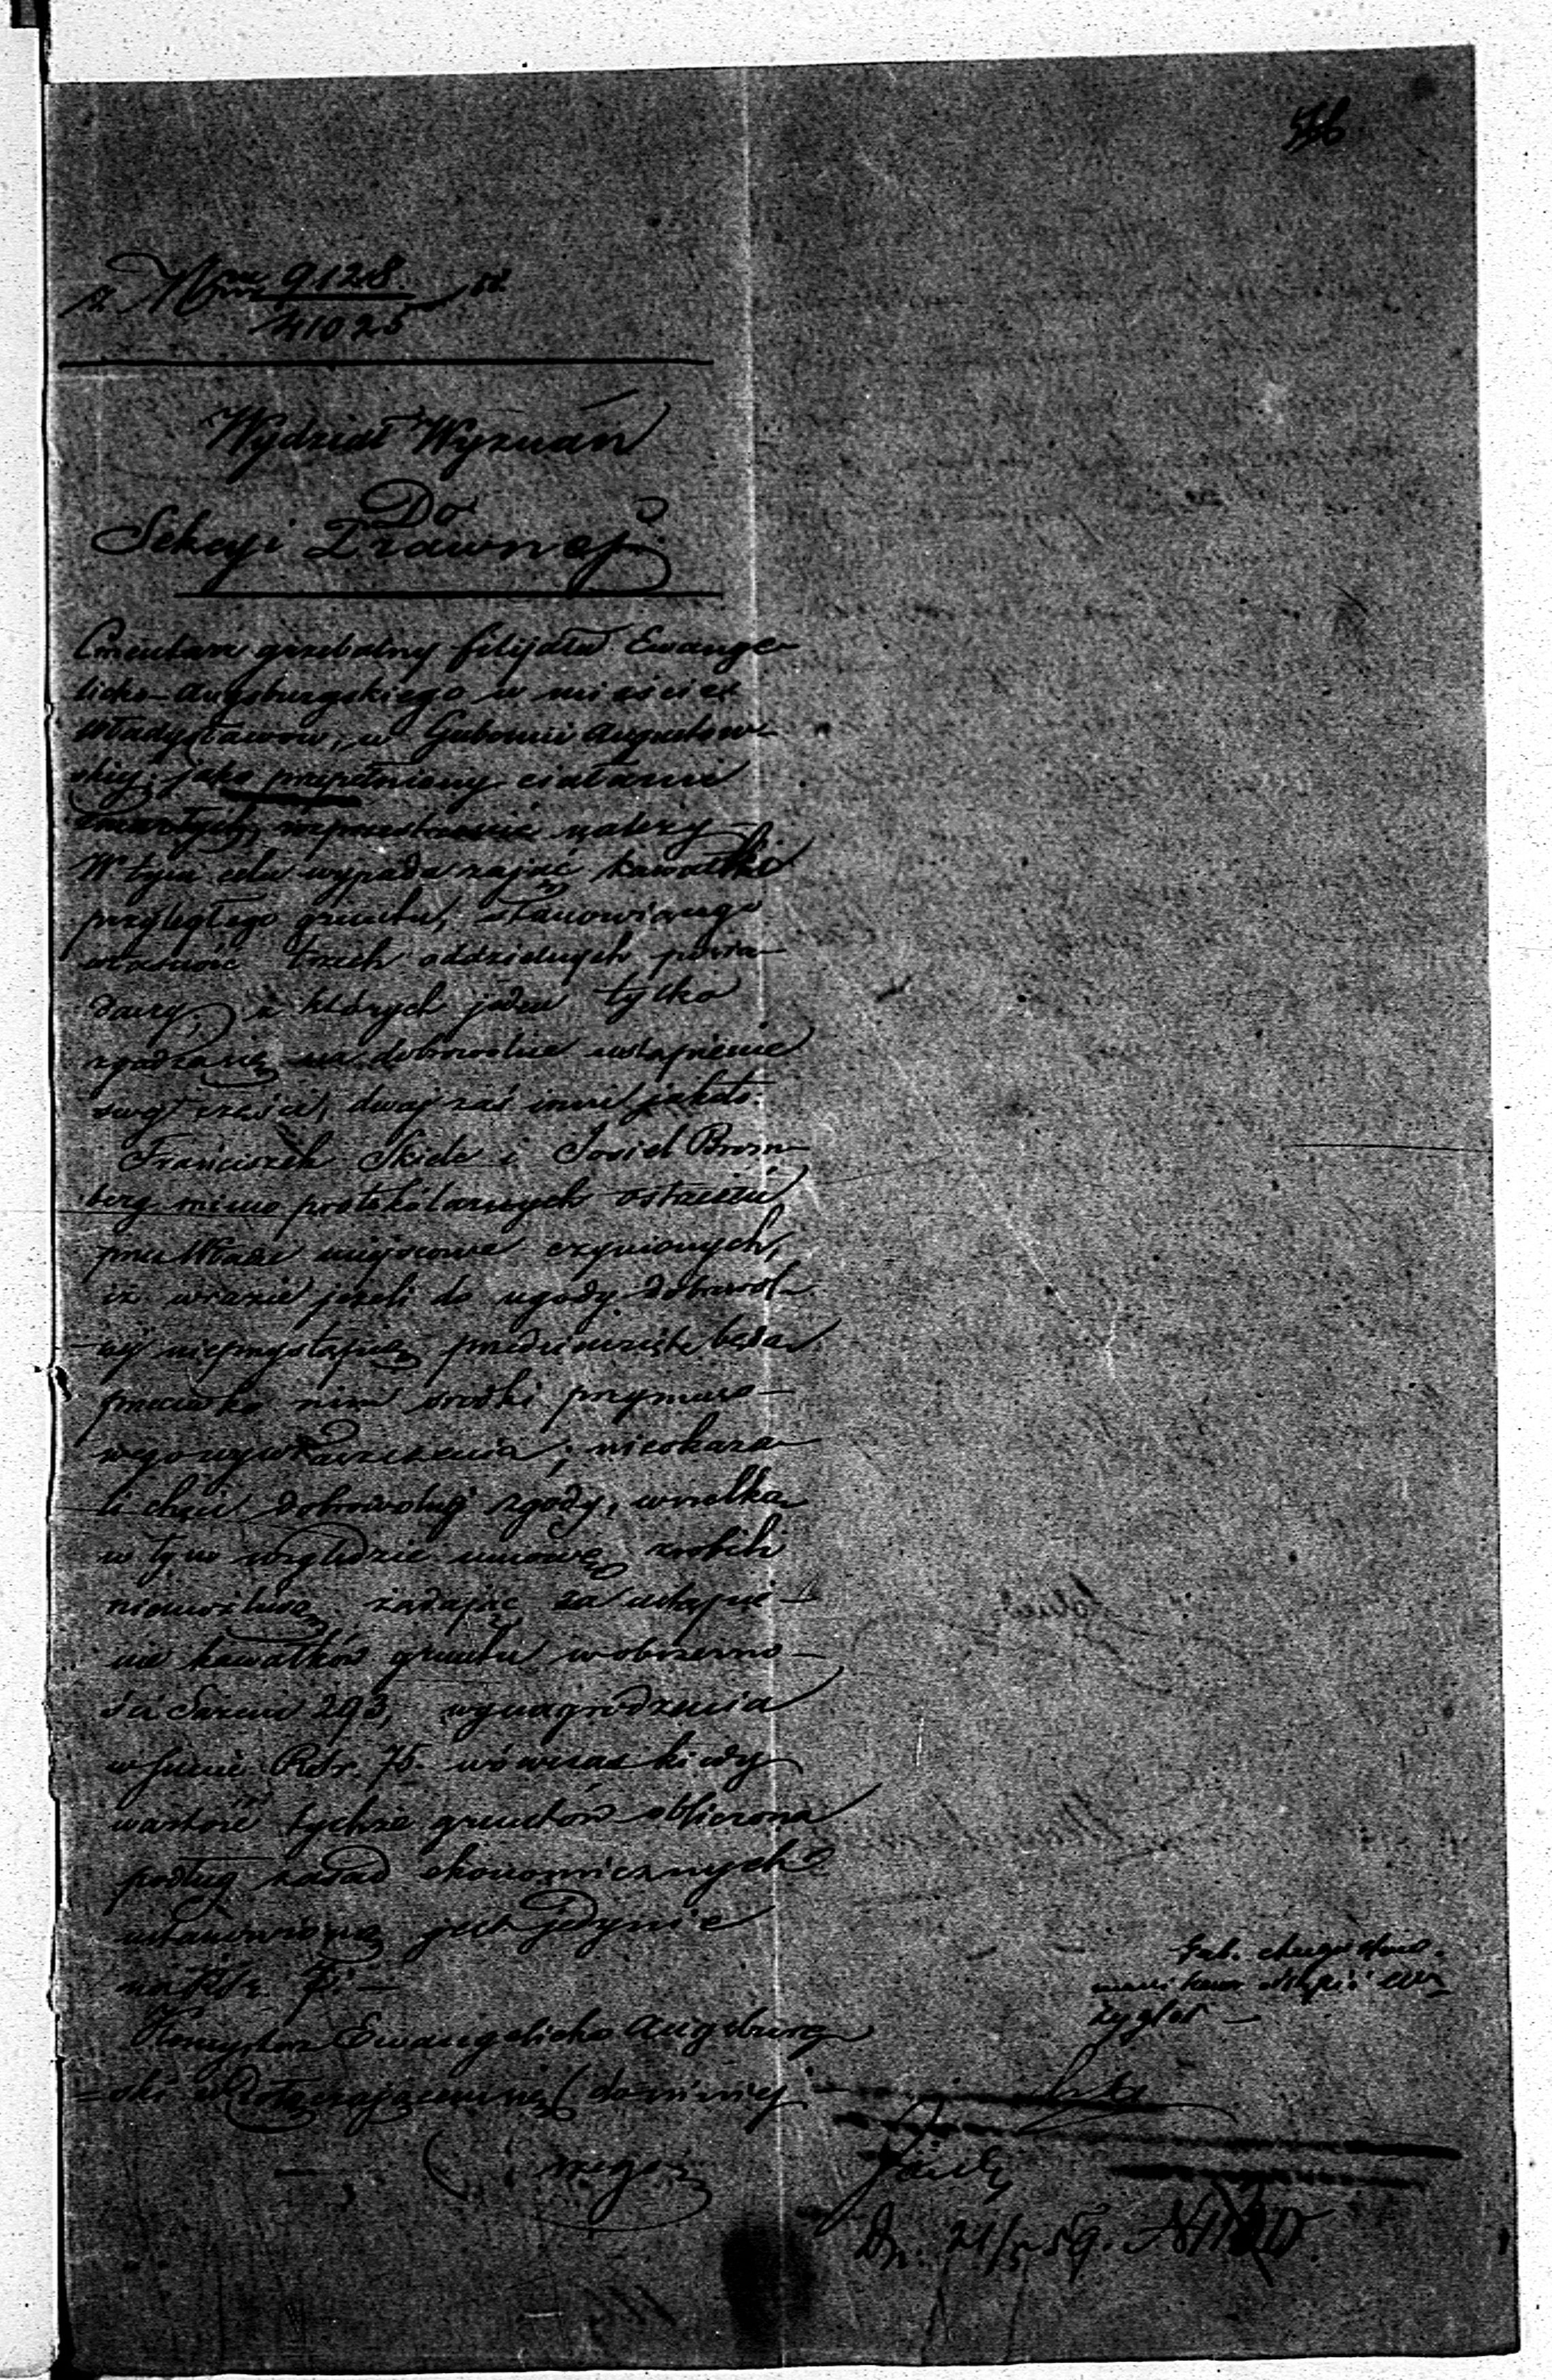 z Nru 9128
41025
Wydział Wyznań
Do
Sekcyi Prawnej
Cmentarz grzebalny filijału Ewange-
licko-Augsburgskiego w mieście
Władysławow, w Gubernii Augustow-
skiej, jako przepełniony ciałami
zmarłych, rozprzestrzenić należy –
W tym celu wypada zająć kawałki
przyległego gruntu, stanowiącego
własność trzech oddzielnych posia-
daczy, z których jeden tylko
zgadza się na dobrowolne ustąpienie
swej części, dwaj zaś inni jakoto:
Franciszek Skiele i Josiel Brom-
berg mimo protokólarnych ostrzeżeń
przez Władze miejscowe czynionych,
iż wrazie jeżeli do ugody dobrowol-
nej nieprzystąpią przedsięwzięte będą
przeciwko nim środki przymuso-
wego wywłaszczenia; nieokaza-
li chęci dobrowolnej zgody, wszelką
w tym względzie umowę zrobili
niemożliwą żądając za ustąpie-
nie kawałków gruntu w obszerno-
ści Sążeni 293, wynagrodzenia
w summie Rsr. 75. wówczas kiedy
wartość tychże gruntów obliczona
podług zasad ekonomicznych
ustanowioną jest jedynie
na Rsr. 7. –
Konsystorz Ewangelicko Augsburg-
-ski
Gub. Augustow.
Dn. 21/5 59.